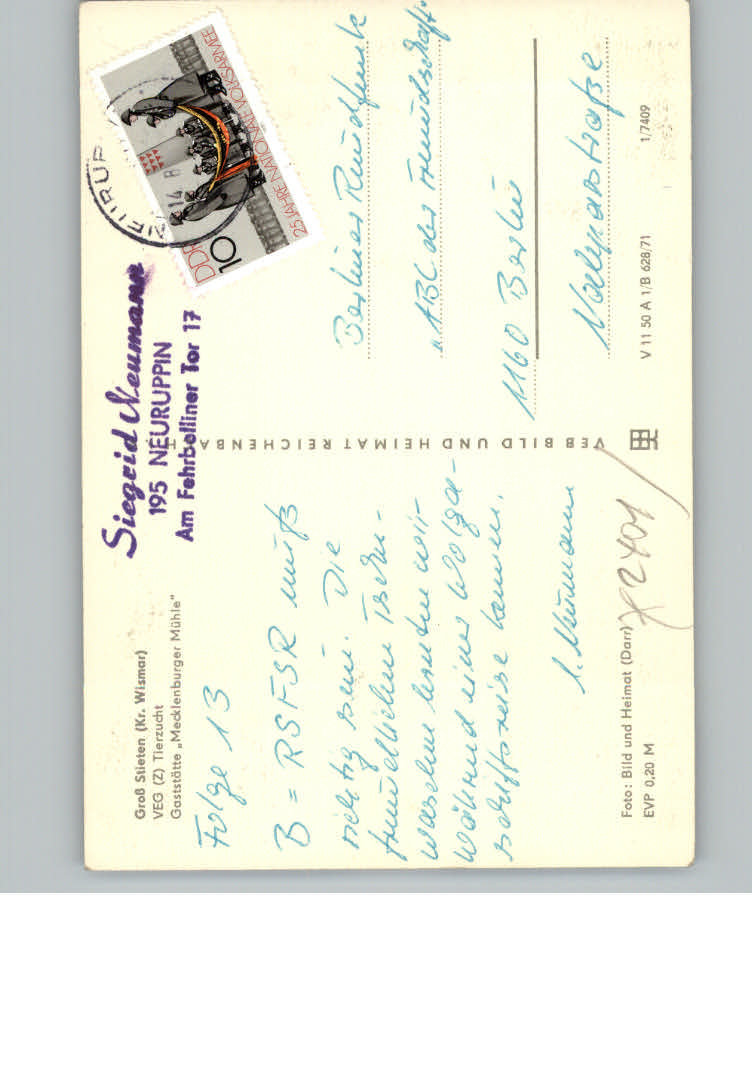 Groß Stieten (Kr. Wismar)
VEG (Z) Tierzucht
Gaststätte „Mecklenburger Mühle"
Siegrid Neumann
195 NEURUPPIN
Am Fehrbelliner Tor 17
NEURUP
14 8
DDR
10
25 JAHRE NATIONALE VOLKSARMEE
Folge 13
B = RSFSR muß
richtig sein. Die
freundlichen Tschu-
waschen lernten wir
während einer Wolga-
schiffsreise kennen.
S. Neumann
VEB BILD UND HEIMAT REICHENBACH
Berliner Rundfunk
„ABC der Freundschaft
1160 Berlin
Nalepastraße
Foto: Bild und Heimat (Darr)
EVP 0,20 M
V 11 50 A 1/B 628/71
1/7409